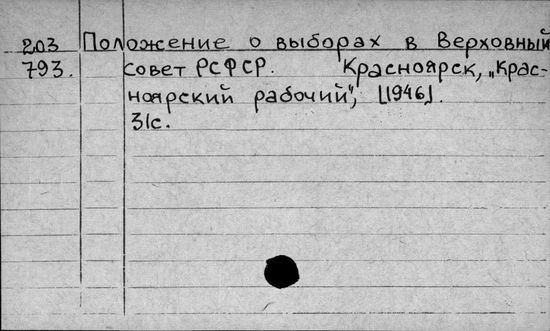 203 Положение о выборах в Верховный
793. совет РСФСР. Красноярск, „Крас-
ноярский рабочий", [1946].
31с.